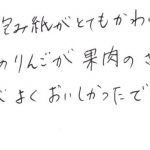 包み紙がとてもかわい
のりんごが果肉のさ
よくおいしかったで